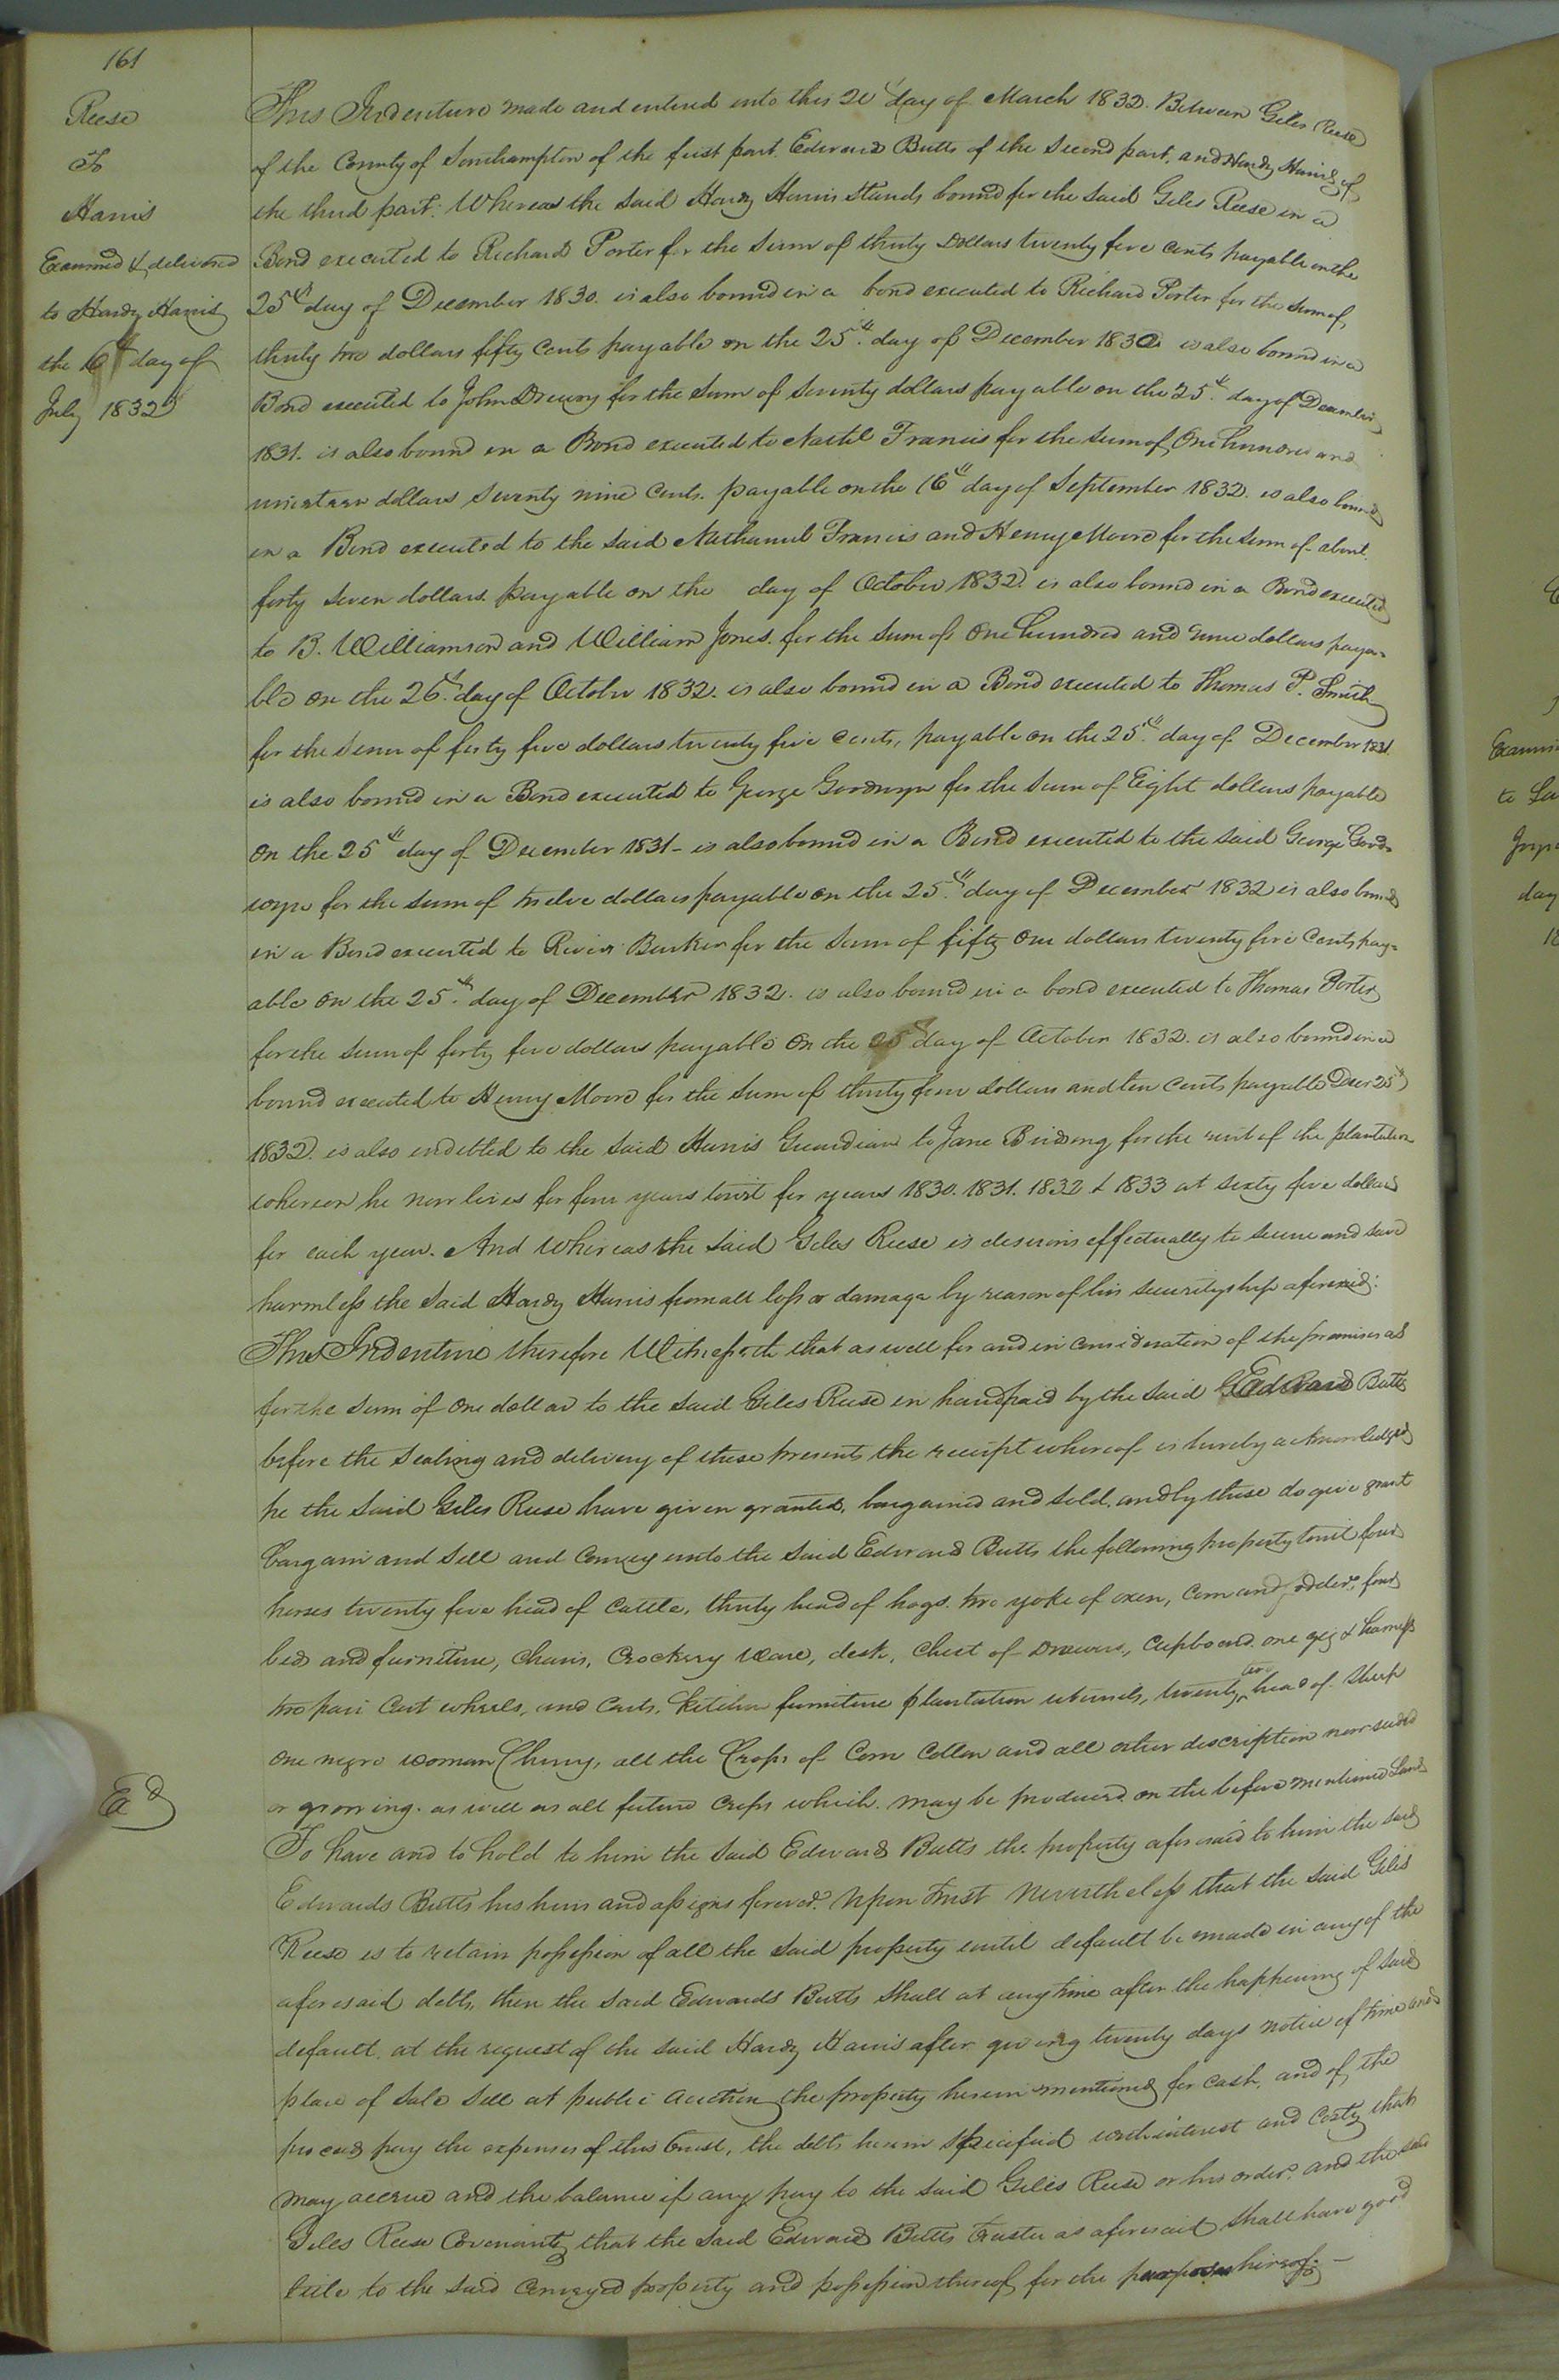 161
Reese
To
Harris
Examined & delivered
to Hardy Harris
the 16th day of
July 1832
This Indenture made and entered into this 20th day of March 1832. Between Giles Reese
of the County of Southampton of the first part. Edward Butts of the Second part, and Hardy Harris of
the third part: Whereas the said Hardy Harris Stands bound for the said Giles Reese in a
Bond executed to Richard Porter for the sum of thirty Dollars twenty five cents payable on the
25th day of December 1830. is also bound in a bond executed to Richard Porter for the sum of
thirty two dollars fifty Cents payable on the 25th day of December 1830 is also bound in a
Bond executed to John Drewry for the Sum of Seventy dollars payable on the 25th day of December
1831. is also bound in a Bond executed to Nathl Francis for the sum of One hundred and
nineteen dollars Seventy nine Cents. payable on the 16th day of September 1832. is also bound
in a Bond executed to the said Nathaniel Francis and Henry Moore for the sum of about
forty Seven dollars. payable on the day of October 1832. is also bound in a Bond executed
to B. Williamson and William Jones. for the sum of One hundred and some dollars paya-
ble on the 26th day of October 1832. is also bound in a Bond executed to Thomas P. Smith
for the sum of forty five dollars twenty five Cents, payable on the 25th day of December 1831.
is also bound in a Bond executed to George Goodwyn for the sum of Eight dollars payable
on the 25th day of December 1831 - is also bound in a Bond executed to the said George Good-
wyn for the sum of twelve dollars payable on the 25th day of December 1832 is also bound
in a Bond executed to Barker for the sum of fifty One dollars twenty five Cents pay-
able on the 25th day of December 1832. is also bound in a bond executed to Thomas Porter
for the sum of forty five dollars payable on the 25th day of October 1832. is also bound in a
bound executed to Henry Moore for the sum of thirty four dollars and ten cents payable Decr 25th
1832. is also indebted to the said Harris Guardian to Jane Birdsong for the rent of the plantation
whereon he now lives for four years towit for years 1830. 1831. 1832 & 1833 at sixty five dollars
for each year. And Whereas the said Giles Reese is desirous effectually to secure and save
harmless the said Hardy Harris from all loss or damage by reason of his securityship aforesaid:
This Indenture therefore Witnesseth that as well for and in consideration of the premises as
for the sum of One dollar to the said Giles Reese in hand paid by the said Edward Butts
before the sealing and delivery of these presents the receipt whereof is hereby acknowledged
he the said Giles Reese have given granted, bargained and sold, and by these do give grant
bargain and Sell and Convey unto the said Edward Butts the following property towit four
horses twenty five head of Cattle, thirty head of hogs. two yoke of oxen, Corn and fodder, four
beds and furniture, Chairs, Crockery Ware, desk, Chest of Drawers, Cupboard. one gig & harness
two pair Cart wheels, and Carts. Kitchen furniture plantation utensils, twenty two head of Sheep
One negro woman Cherry, all the Crops of Corn Cotton and all other description now seeded
or growing. as well as all future Crops which may be produced on the before mentioned Land
To have and to hold to him the said Edward Butts the property aforesaid to him the said
Edwards Butts his heirs and assigns forever. Upon Trust Nevertheless that the said Giles
Reese is to retain possession of all the said property until default be made in any of the
aforesaid debts, then the said Edwards Butts Shall at any time after the happening of said
default. at the request of the said Hardy Harris after giving twenty days notice of time and
place of Sale Sell at public auction the property herein mentioned for Cash, and of the
proceeds pay the expenses of this trust, the debts herein specified with interest and Costs that
may accrue and the balance if any pay to the said Giles Reese or his order. and the said
Giles Reese Covenants that the said Edward Butts Trustee as aforesaid Shall have good
title to the said conveyed property and possession thereof for the purposes hereof. -
Ed